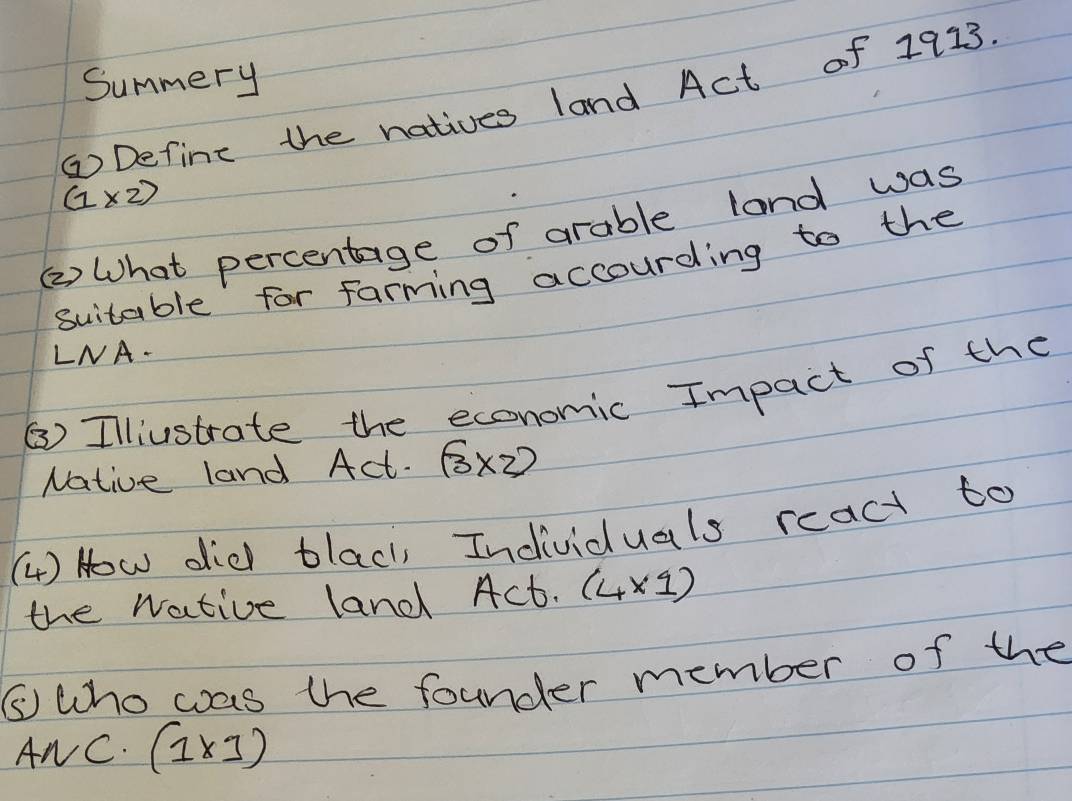 Summery
(1) Define the natives land Act of 1913.
(1x2)
(2) What percentage of arable land was
suitable for farming accourding to the
LNA.
(3) Illiustrate the economic Impact of the
Native land Act. (3x2)
(4) How did black Individuals react to
the Native land Act. (4x1)
(5) Who was the founder member of the
ANC. (1x1)